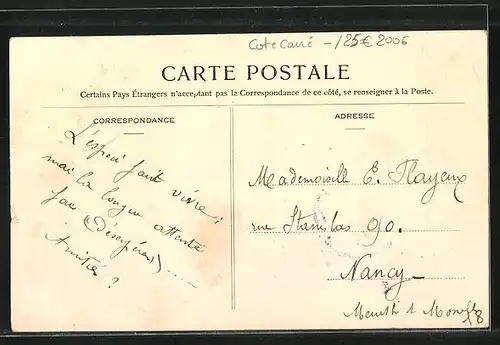 Cote Carré - 125€ 2006
CARTE POSTALE
Certains Pays Étrangers n'acceptant pas la Correspondance de ce côté, se renseigner à la Poste.
CORRESPONDANCE
L'espoir fait vivre;
mais la longue attente
fait (Désespérer) .....
Amitiés ?
ADRESSE
Mademoiselle E. Flayeux
rue Stanislas 90.
Nancy
Meurthe &